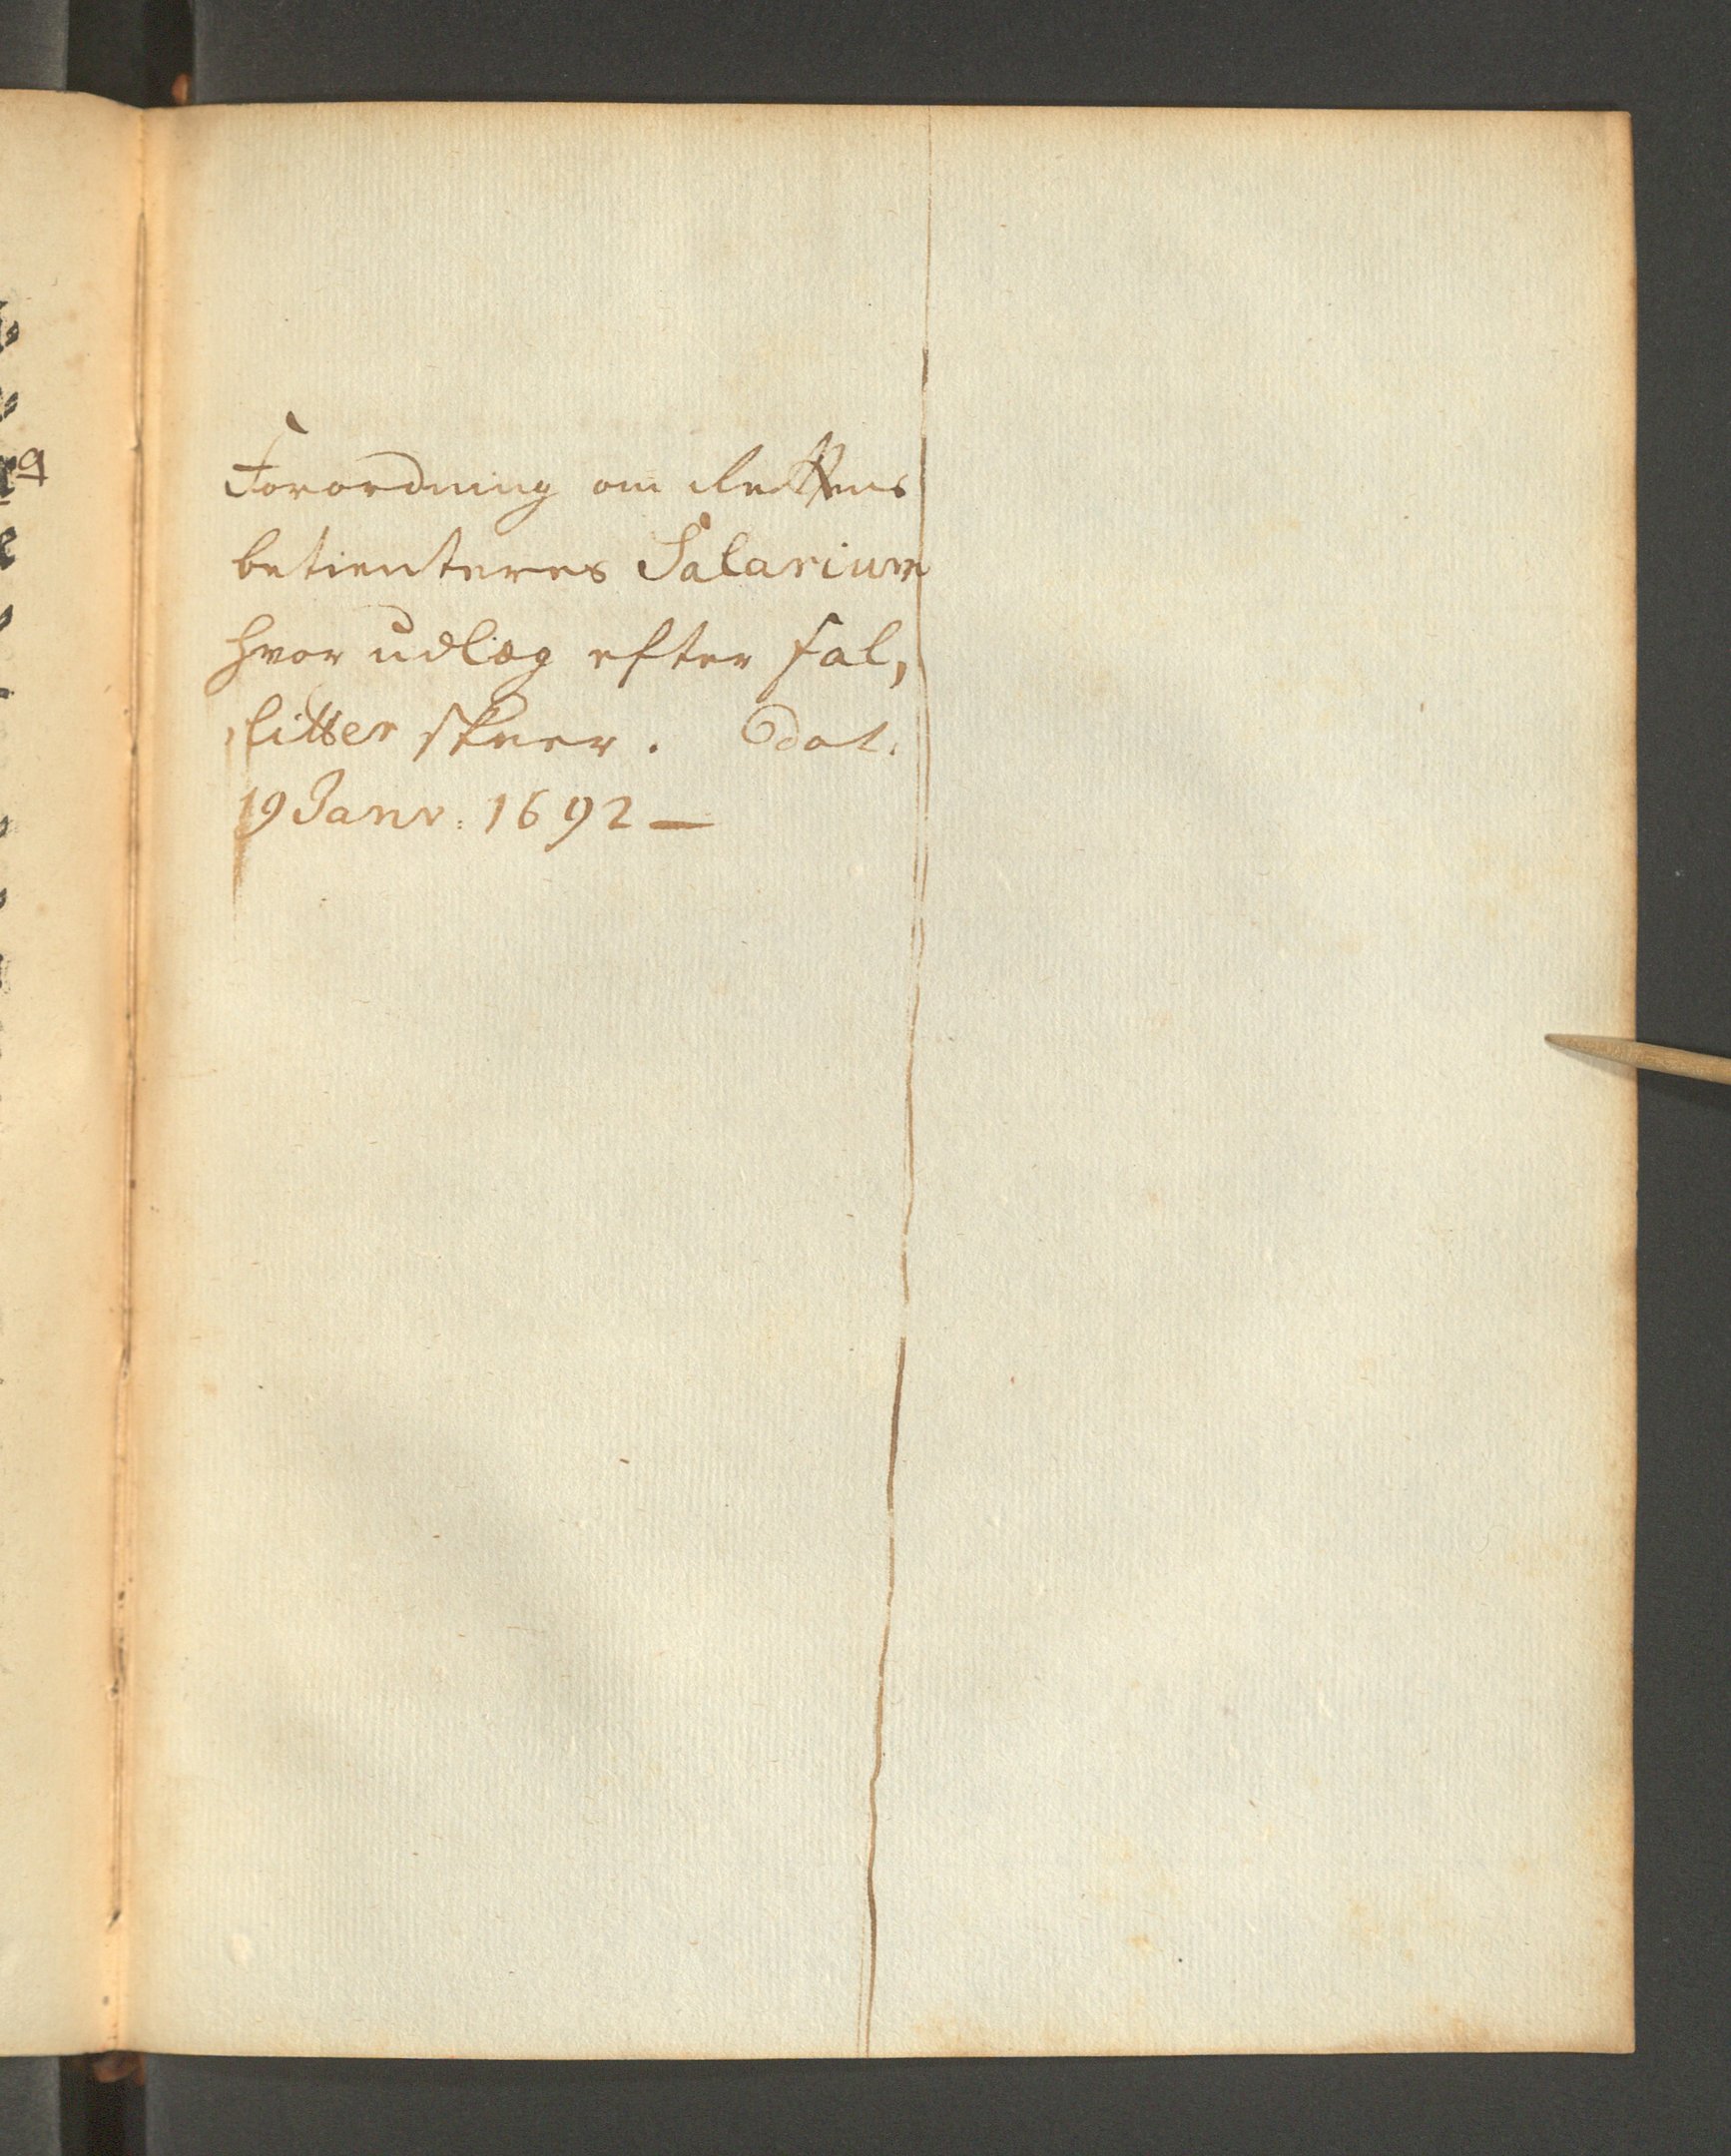 Forordning om Rettens
betienteres Salarium
hvor udlæg efter fal,
,litter skeer. Dat.
19 Janv: 1692 —